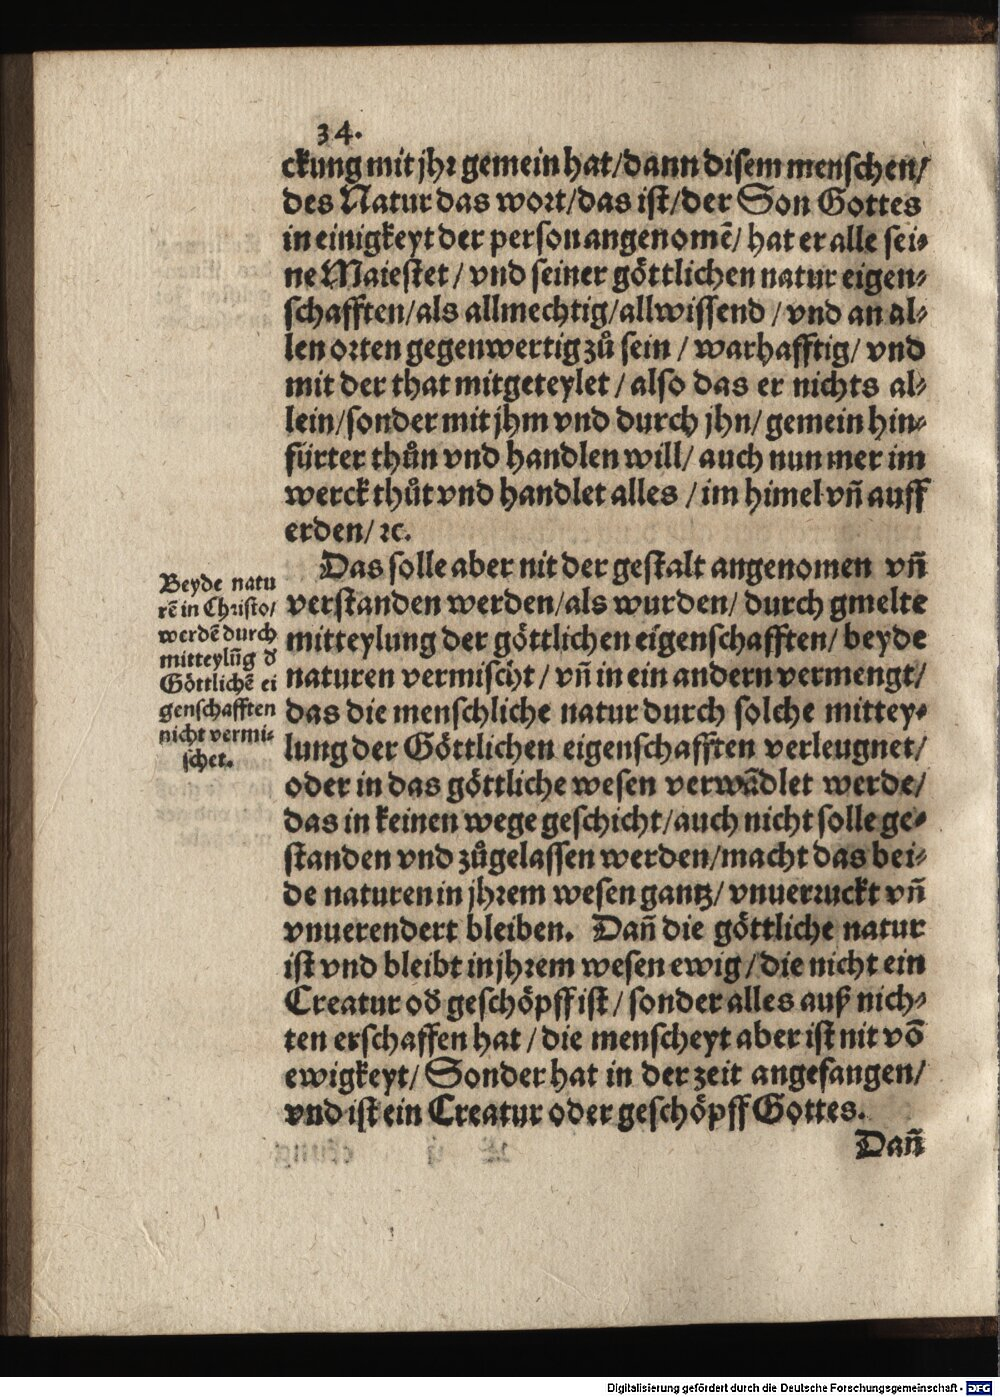 34.
ckung mit jhr gemein hat/dann disem menschen/
des Natur das wort/das ist/der Son Gottes
in einigkeyt der person angenomē/ hat er alle sei-
ne Maiestet/ vnd seiner göttlichen natur eigen-
schafften/als allmechtig/allwissend/ vnd an al-
len orten gegenwertig zů sein/ warhafftig/ vnd
mit der that mitgeteylet/ also das er nichts al-
lein/sonder mit jhm vnd durch jhn/ gemein hin-
fürter thůn vnd handlen will/ auch nun mer im
werck thůt vnd handlet alles/ im himel vñ auff
erden/ ꝛc.
Das solle aber nit der gestalt angenomen vñ
verstanden werden/als wurden/ durch gmelte
mitteylung der göttlichen eigenschafften/ beyde
naturen vermischt/ vñ in ein andern vermengt/
das die menschliche natur durch solche mittey-
lung der Göttlichen eigenschafften verleugnet/
oder in das göttliche wesen verwādlet werde/
das in keinen wege geschicht/auch nicht solle ge-
standen vnd zůgelassen werden/macht das bei-
de naturen in jhrem wesen gantz/ vnuerruckt vñ
vnuerendert bleiben. Dañ die göttliche natur
ist vnd bleibt in jhrem wesen ewig/die nicht ein
Creatur od̄ geschöpff ist/ sonder alles auß nich-
ten erschaffen hat/ die menscheyt aber ist nit vō
ewigkeyt/ Sonder hat in der zeit angefangen/
vnd ist ein Creatur oder geschöpff Gottes.
Dañ
Beyde natu
rē in Christo/
werdē durch
mitteylūg d̄
Göttlichē ei
genschafften
nicht vermi-
schet.
Digitalisierung gefördert durch die Deutsche Forschungsgemeinschaft - DFG